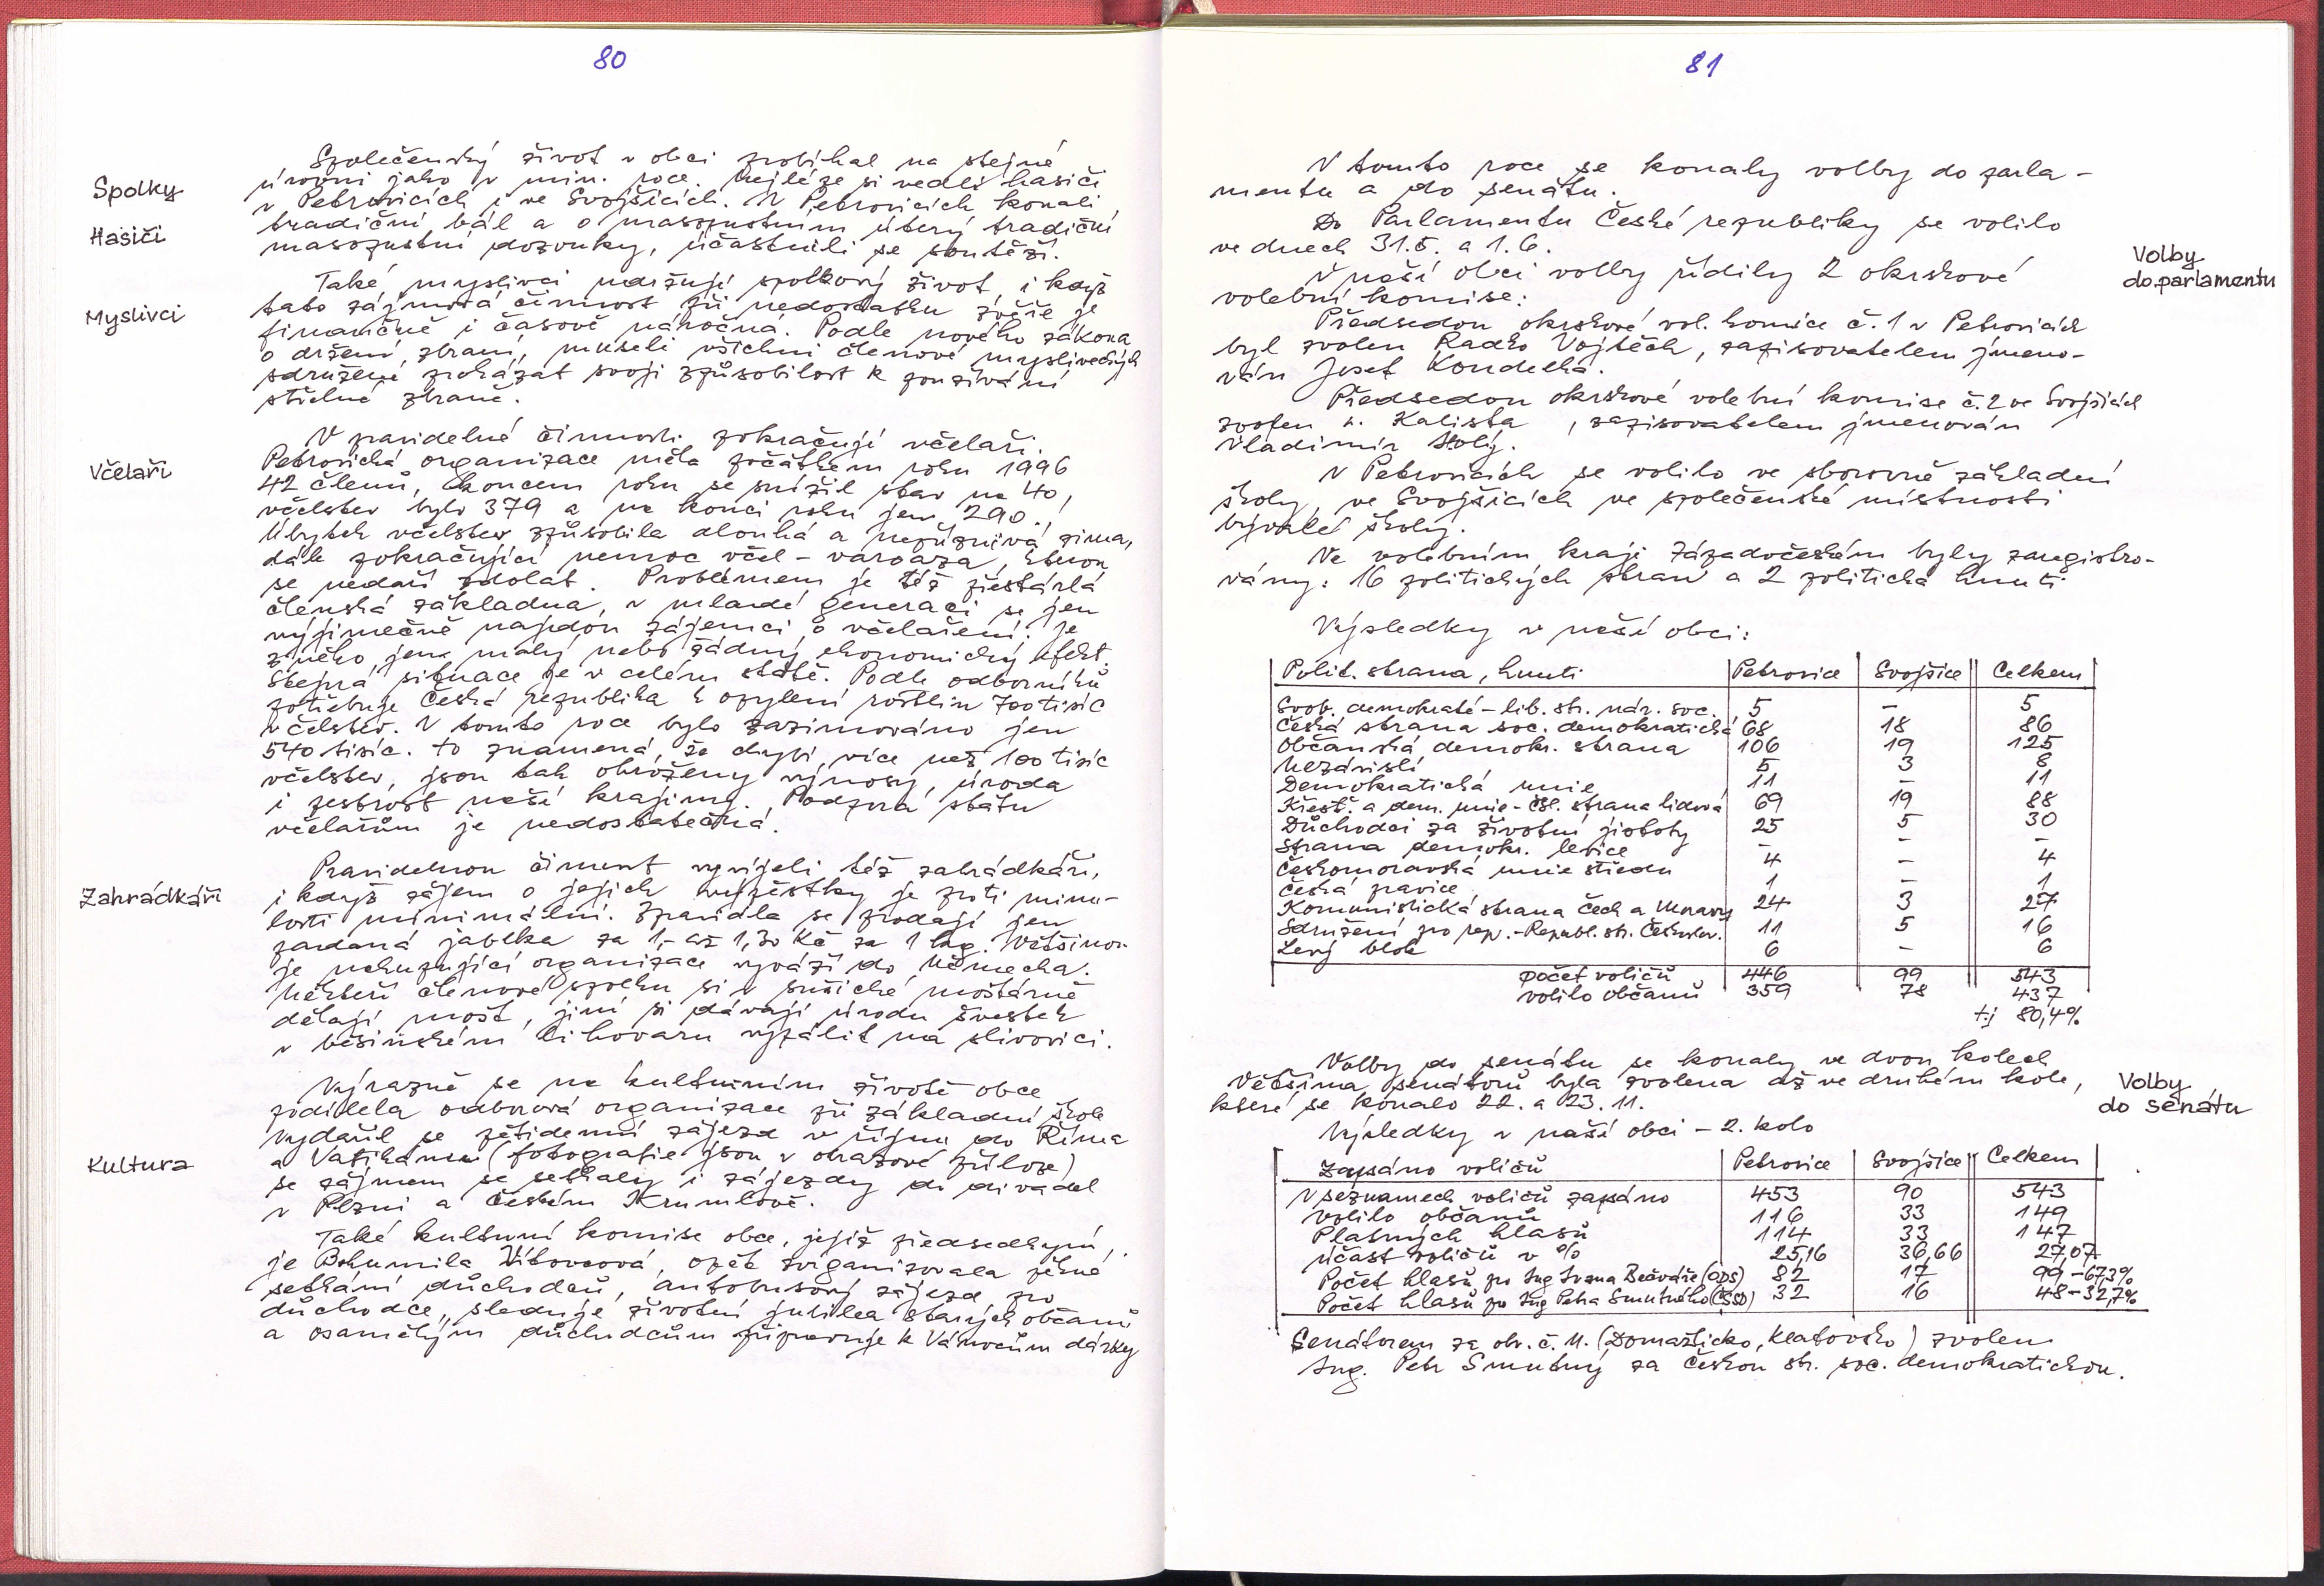 80
Spolky
Hasiči
Společenský život v obci probíhal na stejné
úrovni jako v min. roce. Nejlépe si vedli hasiči
v Petrovicích i ve Svojšicích. V Petrovicích konali
tradiční bál a o masopustním úterý tradiční
masopustní pozounky, účastnili se soutěží.
Myslivci
Také myslivci udržují spolkový život, i když
tato zájmová činnost při nedostatku zvěře je
finančně i časově náročná. Podle nového zákona
o držení zbraní, museli všichni členové mysliveckých
sdružení prokázat svoji způsobilost k používání
střelné zbraně.
Včelaři
V pravidelné činnosti pokračují včelaři.
Petrovická organizace měla počátkem roku 1996
42 členů, koncem roku se snížil stav na 40,
včelstev bylo 379 a na konci roku jen 290.
Úbytek včelstev způsobila dlouhá a nepříznivá zima,
dále pokračující nemoc včel - varoáza, kterou
se nedaří zdolat. Problémem je též přestárlá
členská základna, v mladé generaci se jen
výjimečně najdou zájemci o včelaření. Je
z něho jen malý nebo žádný ekonomický efekt.
Stejná situace je v celém státě. Podle odborníků
potřebuje Česká republika k opylení rostlin 700 tisíc
včelstev. V tomto roce bylo zazimováno jen
540 tisíc. To znamená, že chybí více než 100 tisíc
včelstev, jsou tak ohroženy výnosy, úroda
i pestrost naší krajiny. Podpora státu
včelařům je nedostatečná.
Zahrádkáři
Pravidelnou činnost vyvíjeli též zahrádkáři,
i když zájem o jejich výpěstky je proti minu-
losti minimální. Zpravidla se prodají jen
padaná jablka za 1,- až 1,30 Kč za 1 kg. Většinou
je nakupující organizace vyváží do Německa.
Někteří členové spolku si v sušické moštárně
dělají mošt, jiní si dávají úrodu švestek
v běšinském lihovaru vypálit na slivovici.
Kultura
Výrazně se na kulturním životě obce
podílela odborová organizace při základní škole
Vydařil se pětidenní zájezd v říjnu do Říma
a Vatikánu (fotografie jsou v obrazové příloze)
se zájmem se setkaly i zájezdy do divadel
v Plzni a Českém Krumlově.
Také kulturní komise obce, jejíž předsedkyní
je Bohumila Vítovcová, opět zorganizovala pěkné
setkání důchodců, autobusový zájezd pro
důchodce, sleduje životní jubilea starých občanů
a osamělým důchodcům připravuje k Vánocům dárky
81
V tomto roce se konaly volby do parla-
mentu a do senátu.
Volby
do parlamentu
Do Parlamentu České republiky se volilo
ve dnech 31.5. a 1.6.
V naší obci volby řídily 2 okrskové
volební komise:
Předsedou okrskové vol. komise č. 1 v Petrovicích
byl zvolen Radko Vojtěch, zapisovatelem jmeno-
ván Josef Koudelka.
Předsedou okrskové volební komise č. 2 ve Svojšicích
zvolen p. Kalista , zapisovatelem jmenován
Vladimír Holý.
V Petrovicích se volilo ve sborovně základní
školy, ve Svojšicích ve společenské místnosti
bývalé školy.
Ve volebním kraji Západočeském byly zaregistro-
vány: 16 politických stran a 2 politická hnutí
Výsledky v naší obci:
Polit. strana, hnutí Petrovice Svojšice Celkem
Svob. demokraté - lib. str. nár. soc. 5 - 5
Česká strana soc. demokratická 68 18 86
Občanská demokr. strana 106 19 125
Nezávislí 5 3 8
Demokratická unie 11 - 11
Křesť. a dem. unie - Čsl. strana lidová 69 19 88
Důchodci za životní jistoty 25 5 30
Strana demokr. levice - - -
Českomoravská unie středu 4 - 4
Česká pravice 1 - 1
Komunistická strana Čech a Moravy 24 3 27
Sdružení pro rep. - Republ. str. Českoslov. 11 5 16
Levý blok 6 - 6
počet voličů 446 99 543
volilo občanů 359 78 437
tj 80,4%
Volby
do senátu
Volby do senátu se konaly ve dvou kolech
Většina senátorů byla zvolena až ve druhém kole,
které se konalo 22. a 23. 11.
Výsledky v naší obci - 2. kolo
Zapsáno voličů Petrovice Svojšice Celkem
V seznamech voličů zapsáno 453 90 543
Volilo občanů 116 33 149
Platných hlasů 114 33 147
účast voličů v % 25,16 36,66 27,07
Počet hlasů pro Ing Ivana Bečváře (ODS) 82 17 99 - 67,3%
Počet hlasů pro Ing Petra Smutného (ČSSD) 32 16 48 - 32,7%
Senátorem za obv. č. 11. (Domažlicko, Klatovsko) zvolen
Ing. Petr Smutný za Českou str. soc. demokratickou.